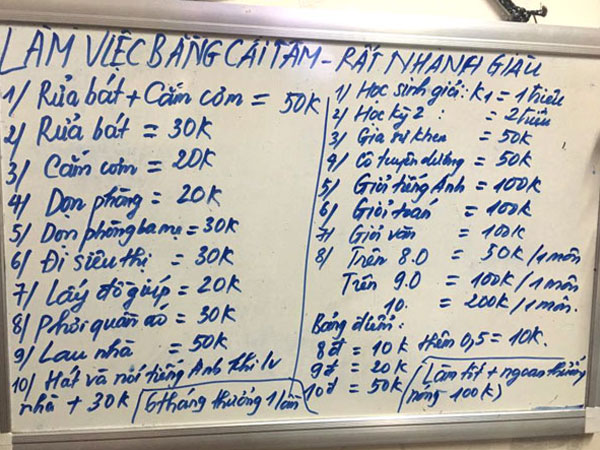 LÀM VIỆC BẰNG CÁI TÂM - RẤT NHANH GIÀU
1/ Rửa bát + Cắm cơm = 50K
2/ Rửa bát = 30K
3/ Cắm cơm = 20K
4/ Dọn phòng = 20K
5/ Dọn phòng ba mẹ = 30K
6/ Đi siêu thị = 30K
7/ Lấy đồ giúp = 20K
8/ Phơi quần áo = 30K
9/ Lau nhà = 50K
10/ Hát và nói tiếng Anh khi lv
nhà + 30K (6 tháng thưởng 1 lần)
1/ Học sinh giỏi: K1 = 1 triệu
2/ Học kỳ 2 : = 2 triệu
3/ Gia sư khen = 50K
4/ Cô tuyên dương = 50K
5/ Giỏi tiếng Anh = 100K
6/ Giỏi toán = 100K
7/ Giỏi văn = 100K
8/ Trên 8.0 = 50K / 1 môn
Trên 9.0 = 100K / 1 môn
10. = 200K / 1 môn.
Bảng điểm:
8đ = 10K thêm 0,5 = 10K.
9đ = 20K
10đ = 50K
(Làm tốt + ngoan thưởng
nóng 100K)